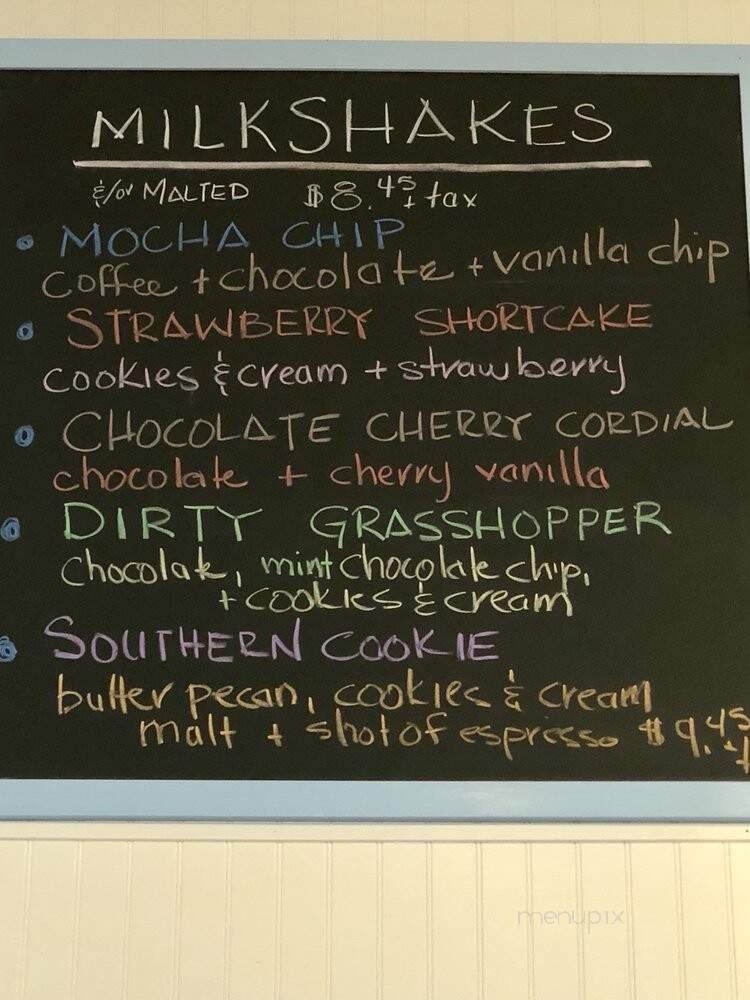 MILKSHAKES
&/or MALTED $8.45 + tax
• MOCHA CHIP
coffee + chocolate + vanilla chip
• STRAWBERRY SHORTCAKE
cookies & cream + strawberry
• CHOCOLATE CHERRY CORDIAL
chocolate + cherry vanilla
• DIRTY GRASSHOPPER
chocolate, mint chocolate chip,
+ cookies & cream
• SOUTHERN COOKIE
butter pecan, cookies & cream
malt + shot of espresso $9.45
menupix